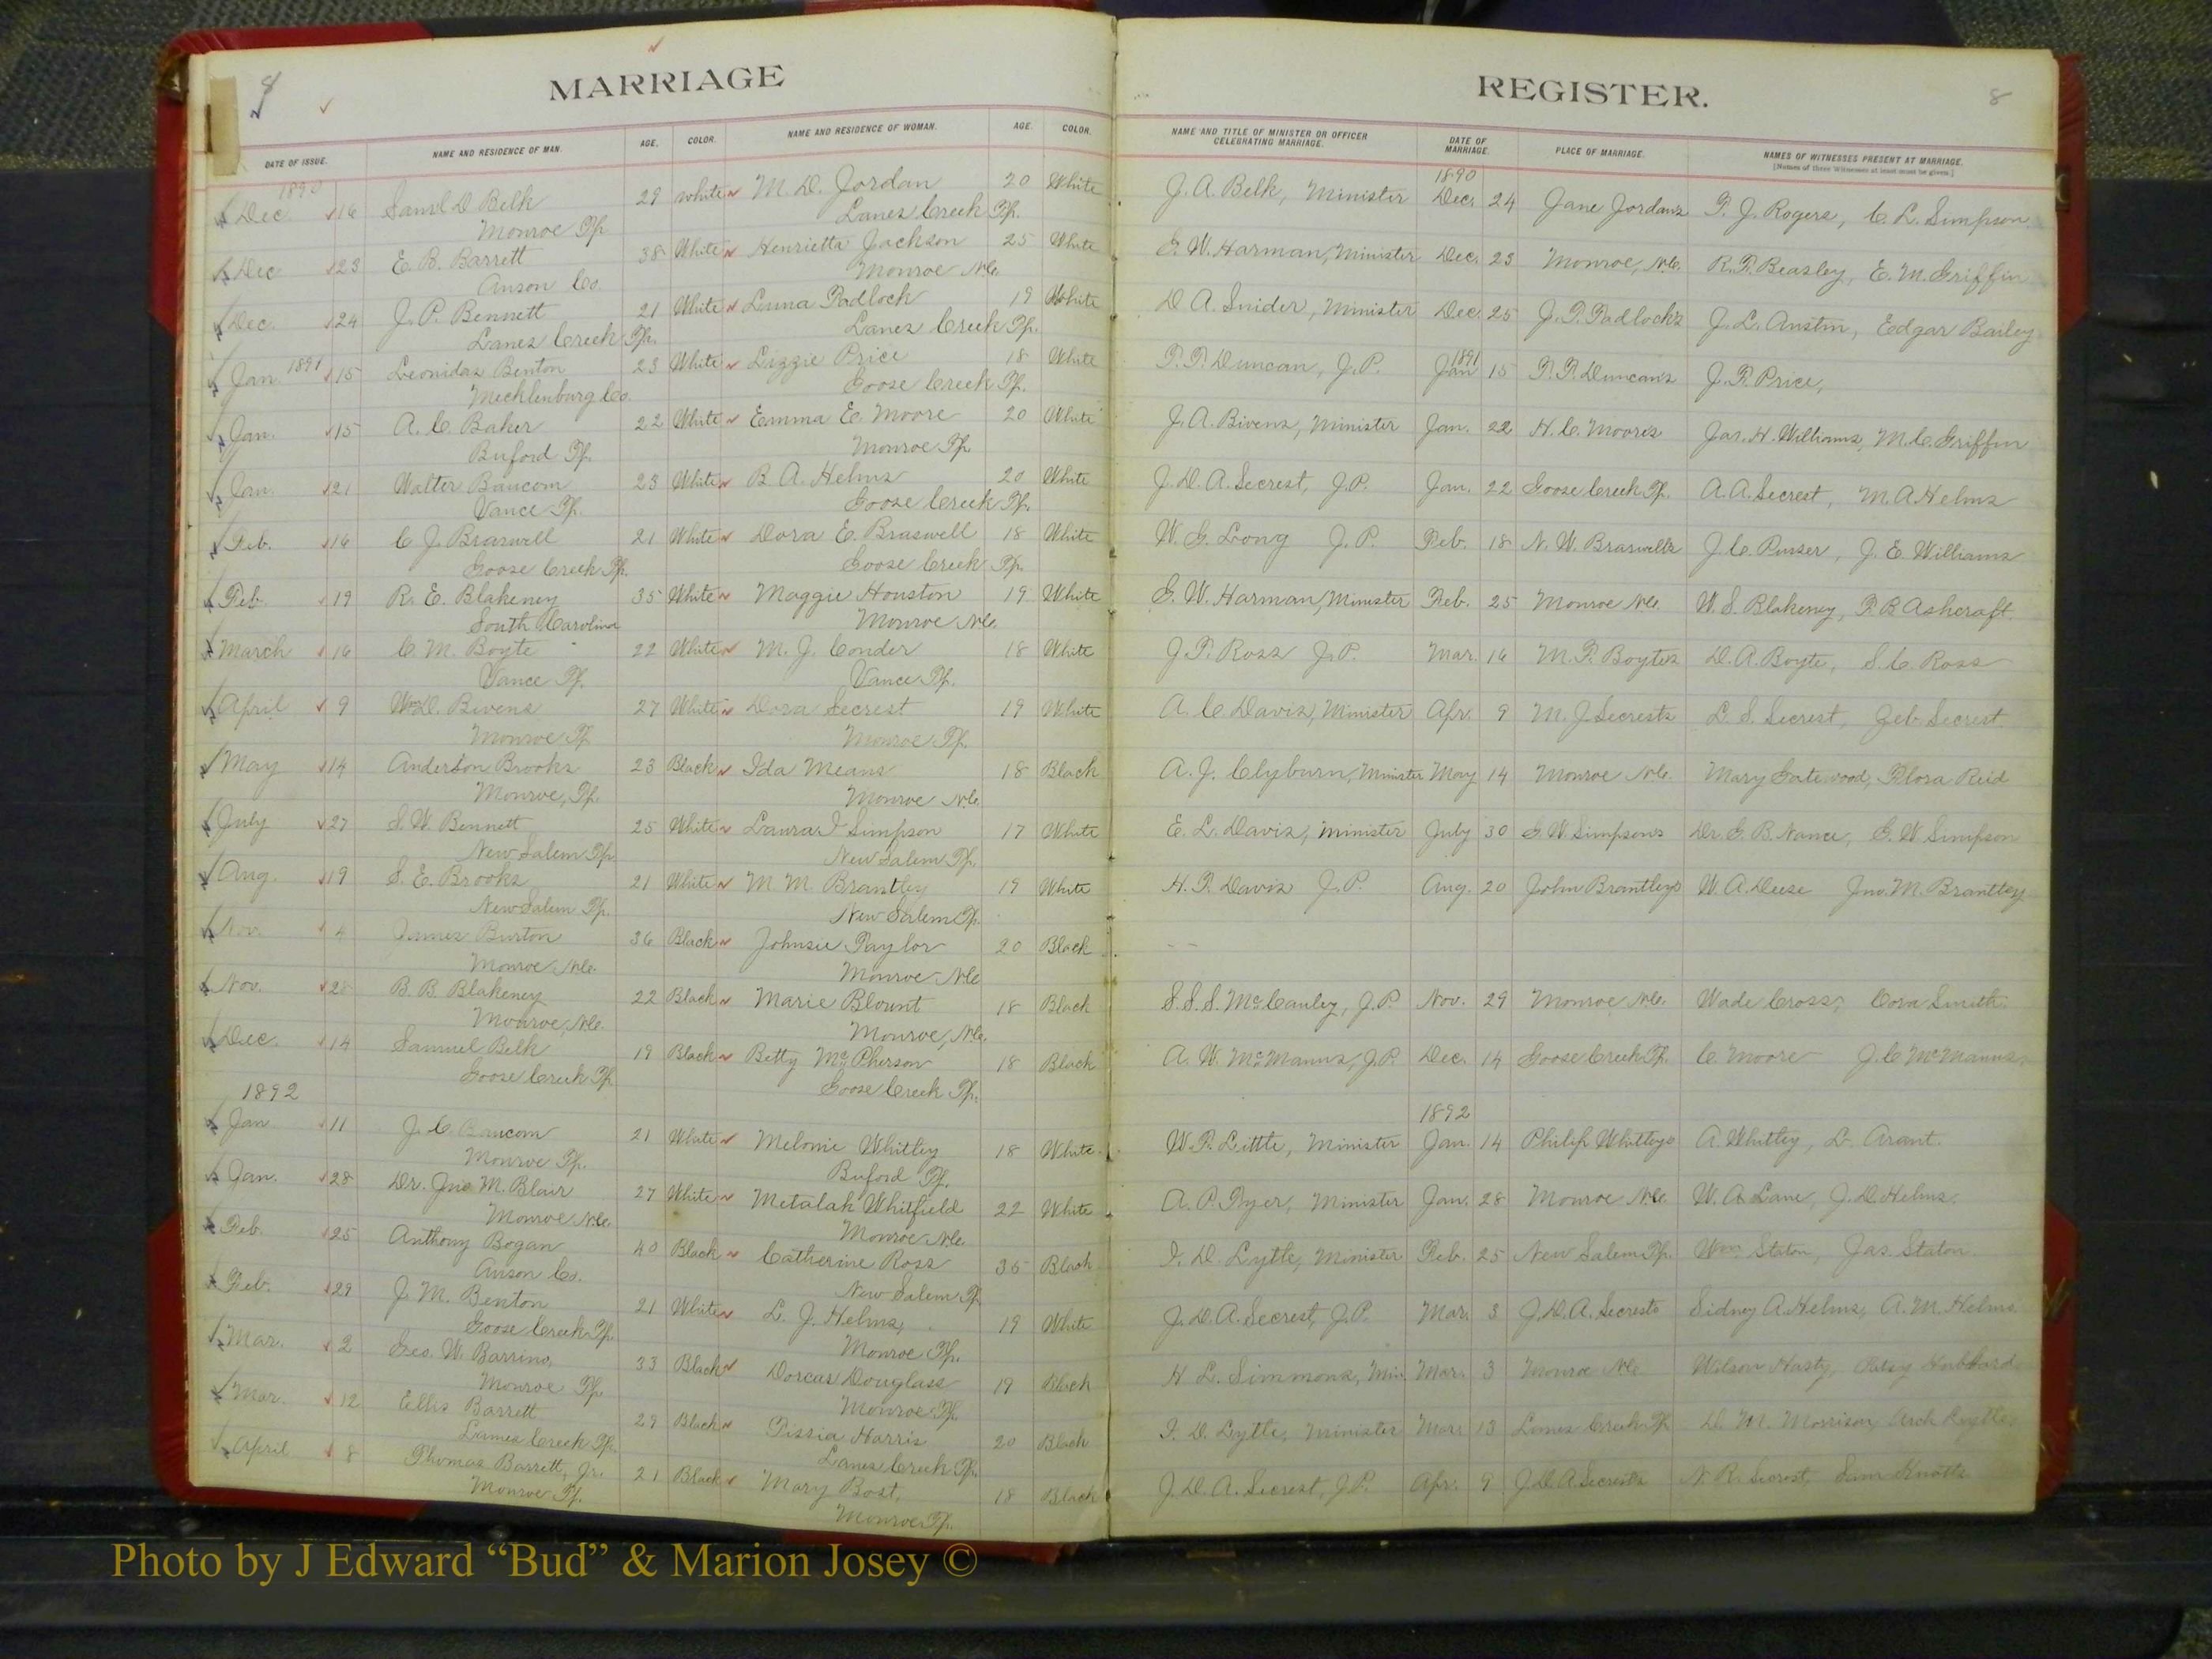 8
MARRIAGE
DATE OF ISSUE. NAME AND RESIDENCE OF MAN. AGE. COLOR. NAME AND RESIDENCE OF WOMAN. AGE. COLOR.
REGISTER.
8
NAME AND TITLE OF MINISTER OR OFFICER CELEBRATING MARRIAGE. DATE OF MARRIAGE. PLACE OF MARRIAGE. NAMES OF WITNESSES PRESENT AT MARRIAGE.
[Names of three Witnesses at least must be given.]
1890 1890
Dec. 16 Saml D Belk 29 White M. D. Jordan 20 White J. A. Belk, Minister Dec. 24 Jane Jordans T. J. Rogers, C. L. Simpson
Monroe Tp. Lanes Creek Tp.
Dec 23 E. B. Barrett 38 White Henrietta Jackson 25 White G. W. Harman, Minister Dec. 23 Monroe, N.C. R. F. Beasley, E. M. Griffin
Anson Co. Monroe N.C.
Dec. 24 J. P. Bennett 21 White Luna Padlock 19 White D A. Snider, Minister Dec. 25 J. T. Padlocks J. L. Austin, Edgar Bailey
Lanes Creek Tp. Lanes Creek Tp.
1891 1891
Jan 15 Leonidas Benton 23 White Lizzie Price 18 White T. T. Duncan, J. P. Jan 15 T. T. Duncans J. T. Price,
Mecklenburg Co. Goose Creek Tp.
Jan. 15 A. C Baker 22 White Emma E. Moore 20 White J. A. Bivens, Minister Jan. 22 H. C. Moores Jas. H. Williams, M. C. Griffin
Buford Tp. Monroe Tp.
Jan. 21 Walter Baucom 23 White B A. Helms 20 White J. D. A. Secrest, J. P. Jan. 22 Goose Creek Tp. A. A. Secrest, M. A Helms
Vance Tp. Goose Creek Tp.
Feb. 16 C J. Braswell 21 White Dora E. Braswell 18 White W. G. Long J. P. Feb. 18 N. W. Braswells J. C. Purser, J. E. Williams
Goose Creek Tp. Goose Creek Tp.
Feb. 19 R. E. Blakeney 35 White Maggie Houston 19 White G. W. Harman, Minister Feb. 25 Monroe N.C. W. S. Blakeney, F. B Ashcraft.
South Carolina Monroe N.C.
March 16 C. M. Boyte 22 White M. J. Conder 18 White J. T. Ross J. P. Mar. 16 M. T. Boytes D. A. Boyte, S. C. Ross
Vance Tp. Vance Tp.
April 9 Wm D. Bivens 27 White Dora Secrest 19 White A. C Davis, Minister Apr. 9 M. J Secrests L. S. Secrest, Zeb Secrest
Monroe Tp Monroe Tp.
May 14 Anderson Brooks 23 Black Ida Means 18 Black A. J. Clyburn, Minister May 14 Monroe N.C. Mary Gatewood, Flora Reid
Monroe, Tp. Monroe N.C.
July 27 S. W. Bennett 25 White Laura I Simpson 17 White E. L. Davis, Minister July 30 G. W. Simpsons Dr. G. B. Nance, G. W Simpson
New Salem Tp. New Salem Tp.
Aug. 19 S. E. Brooks 21 White M. M. Brantley 19 White H. T. Davis J. P. Aug. 20 John Brantleys W. A. Deese Jno. M. Brantley
New Salem Tp. New Salem Tp.
Nov. 4 James Burton 36 Black Johnsie Taylor 20 Black
Monroe N.C. Monroe N.C
Nov. 28 B. B. Blakeney 22 Black Marie Blount 18 Black S. S. S. McCauley, J. P Nov. 29 Monroe N.C. Wade Cross, Cora Smith
Monroe, N.C. Monroe, N.C.
Dec. 14 Samuel Belk 19 Black Betty McPherson 18 Black A. W. McManus, J. P. Dec. 14 Goose Creek Tp. C. Moore J. C McManus
Goose Creek Tp. Goose Creek Tp.
1892 1892
Jan 11 J. C. Baucom 21 White Melonie Whitley 18 White W. F. Little, Minister Jan. 14 Philip Whitleys A. Whitley, L. Arant.
Monroe Tp. Buford Tp.
Jan. 28 Dr. Jno M. Blair 27 White Metalah Whitfield 22 White A. P. Tyer, Minister Jan. 28 Monroe N.C. W. A Lane, J. D. Helms.
Monroe N.C. Monroe N.C.
Feb. 25 Anthony Bogan 40 Black Catherine Ross 35 Black F. D. Lytle, Minister Feb. 25 New Salem Tp. Wm Staton, Jas. Staton
Anson Co. New Salem Tp
Feb. 29 J. M. Benton 21 White L. J. Helms, 19 White J. D. A. Secrest, J. P. Mar. 3 J. D. A. Secrests Sidney A. Helms, A. M. Helms
Goose Creek Tp. Monroe Tp.
Mar. 2 Geo. W. Barrino, 33 Black Dorcas Douglass 19 Black H L. Simmons, Min. Mar. 3 Monroe N.C. Wilson Hasty, Patsy Hubbard
Monroe Tp. Monroe Tp.
Mar. 12 Ellis Barrett 29 Black Tissia Harris 20 Black F. D. Lytle, Minister Mar. 13 Lanes Creek Tp D. M. Morrison, Arch
Lanes Creek Tp. Lanes Creek Tp.
April 8 Thomas Barrett, Jr. 21 Black Mary Bost, 18 Black J. D. A. Secrest, J. P. Apr. 9 J. D. A Secrests N. R. Secrest, Sam Knotts
Monroe Tp. Monroe Tp.
Photo by J Edward “Bud” & Marion Josey ©